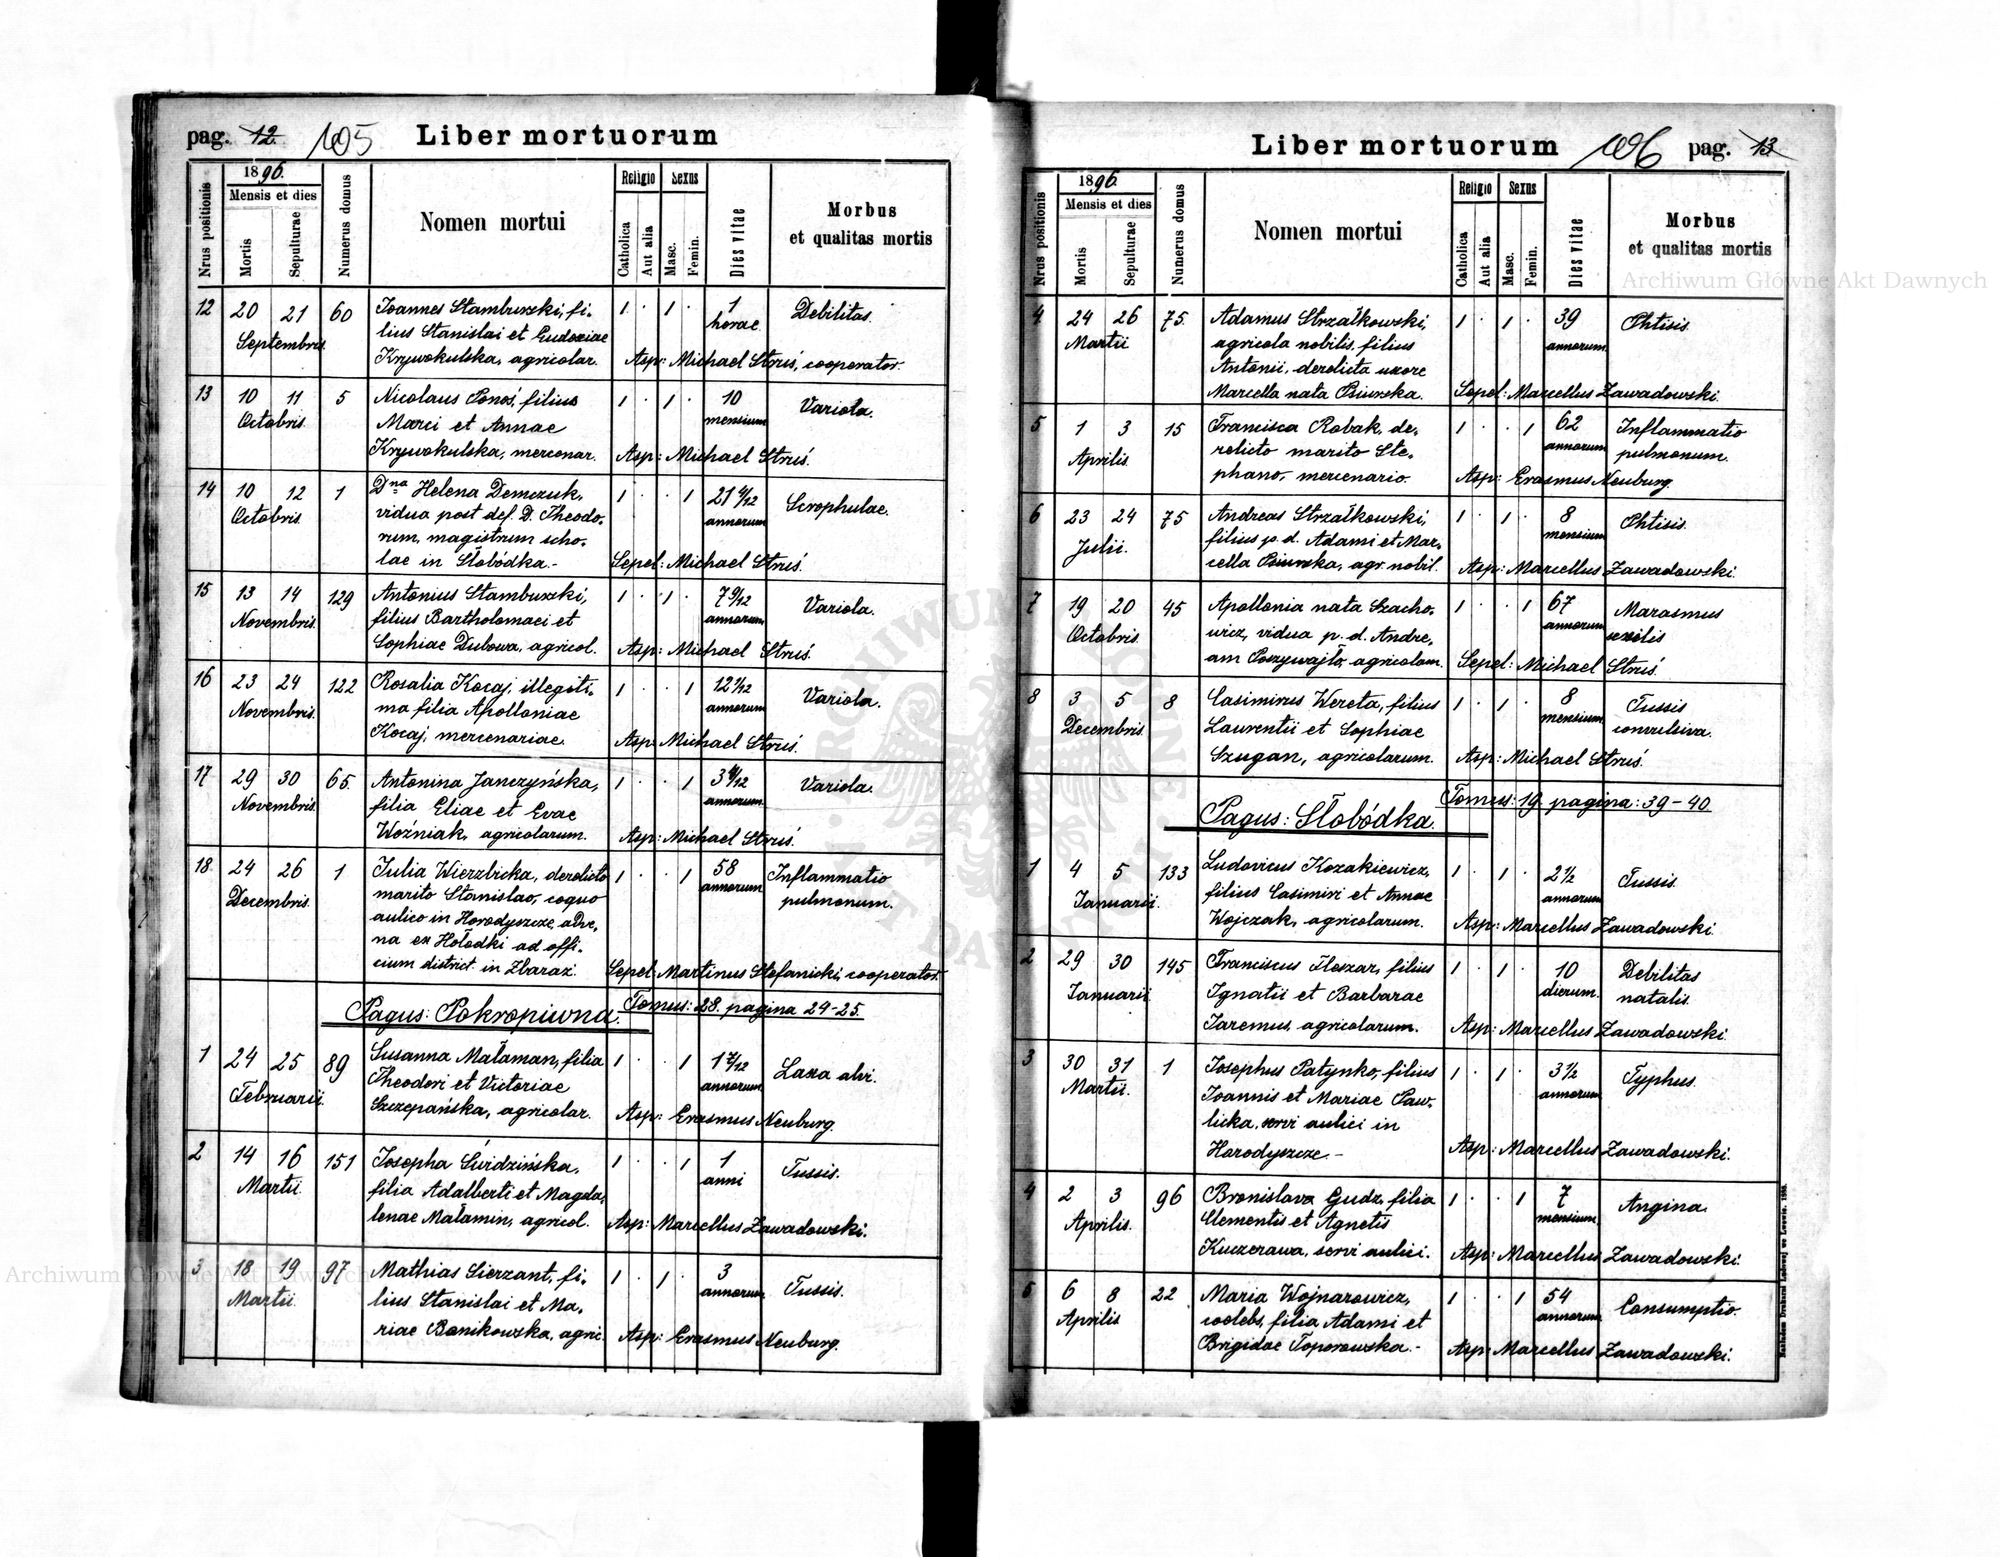 pag. 12. 105 Liber mortuorum
Nrus positionis
1896.
Mensis et dies
Mortis
Sepulturae
Numerus domus
Nomen mortui
Religio
Catholica
Aut alia
Sexus
Masc.
Femin.
Dies vitae
Morbus
et qualitas mortis
12 20 21 60 Joannes Stamburski, fi- 1 · 1 · 1 Debilitas.
Septembris. lius Stanislai et Eudoxiae horae
Krywokulska, agricolar. Asp: Michael Struś, cooperator.
13 10 11 5 Nicolaus Ponoś, filius 1 · 1 · 10 Variola.
Octobris. Marci et Annae mensium
Krywokulska, mercenar. Asp: Michael Struś.
14 10 12 1 Dna Helena Demczuk, 1 · · 1 21 4/12 Scrophulae.
Octobris. vidua post def. D. Theodo- annorum
rum, magistrum scho-
lae in Słobódka.- Sepel: Michael Struś.
15 13 14 129 Antonius Stamburski, 1 · 1 · 7 9/12 Variola.
Novembris. filius Bartholomaei et annorum
Sophiae Dubowa, agricol. Asp: Michael Struś.
16 23 24 122 Rosalia Kocaj, illegiti- 1 · · 1 12 1/12 Variola.
Novembris. ma filia Apolloniae annorum
Kocaj, mercenariae. Asp: Michael Struś.
17 29 30 65. Antonina Janczyńska, 1 · · 1 Variola.
Novembris. filia Eliae et Evae annorum.
Woźniak, agricolarum. Asp: Michael Struś.
18 24 26 1 Julia Wierzbicka, derelicto 1 · · 1 58 Inflammatio
Decembris. marito Stanislao, coquo annorum pulmonum.
aulico in Horodyszcze, adve-
na ex Hołodki ad offi-
cium district. in Zbaraż. Sepel: Martinus Stefanicki, cooperator.
Pagus: Pokropiwna. Tomus: 28. pagina 24-25.
1 24 25 89 Susanna Małaman, filia 1 · · 1 1 7/12 Laxa alvi.
Februarii. Theodori et Victoriae annorum
Szczepańska, agricolar. Asp: Erasmus Neuburg.
2 14 16 151 Josepha Świdzińska, 1 · · 1 1 Tussis.
Martii. filia Adalberti et Magda- anni
lenae Małamin, agricol. Asp: Marcellus Zawadowski.
3 18 19 97 Mathias Sierzant, fi- 1 · 1 · 3 Tussis.
Martii. lius Stanislai et Ma- annorum
riae Bonikowska, agric. Asp: Erasmus Neuburg.
Liber mortuorum 106 pag. 13
Nrus positionis
1896.
Mensis et dies
Mortis
Sepulturae
Numerus domus
Nomen mortui
Religio
Catholica
Aut alia
Sexus
Masc.
Femin.
Dies vitae
Morbus
et qualitas mortis
4 24 26 75. Adamus Strzałkowski, 1 · 1 · 39 Phtisis.
Martii agricola nobilis, filius annorum
Antonii, derelicta uxore
Marcella nata Psiurska. Sepel: Marcellus Zawadowski.
5 1 3 15 Francisca Robak, de- 1 · · 1 62 Inflammatio
Aprilis. relicto marito Ste- annorum pulmonum.
phano, mercenario. Asp: Erasmus Neuburg.
6 23 24 75 Andreas Strzałkowski, 1 · 1 · 8 Phtisis.
Julii. filius p. d. Adami et Mar- mensium
cella Psiurska, agr. nobil. Asp: Marcellus Zawadowski.
7 19 20 45 Apollonia nata Szacho- 1 · · 1 67 Marasmus
Octobris. wicz, vidua p. d. Andre- annorum senilis
am Poszywajło, agricolam. Sepel: Michael Struś.
8 3 5 8 Casimirus Wereta, filius 1 · 1 · 8 Tussis
Decembris. Laurentii et Sophiae mensium convulsiva.
Szugan, agricolarum. Asp: Michael Struś.
Pagus: Słobódka. Tomus: 19. pagina: 39-40
1 4 5 133 Ludovicus Kozakiewicz, 1 · 1 · 2 1/2 Tussis.
Januarii. filius Casimiri et Annae annorum
Wojczak, agricolarum. Asp: Marcellus Zawadowski
2 29 30 145 Franciscus Fleszar, filius 1 · 1 · 10 Debilitas
Januarii. Ignatii et Barbarae dierum. natalis.
Jaremus, agricolarum. Asp: Marcellus Zawadowski.
3 30 31 1 Josephus Patynko, filius 1 · 1 · 3 1/2 Typhus.
Martii. Joannis et Mariae Paw- annorum
licka, servi aulici in
Horodyszcze.- Asp: Marcellus Zawadowski.
4 2 3 96 Bronislava Gudz, filia 1 · · 1 7 Angina.
Aprilis. Clementis et Agnetis mensium
Kuczerawa, servi aulici. Asp: Marcellus Zawadowski.
5 6 8 22 Maria Wojnarowicz, 1 · · 1 54 Consumptio.
Aprilis coelebs, filia Adami et annorum
Brigidae Toporowska.- Asp: Marcellus Zawadowski.
Archiwum Główne Akt Dawnych
Archiwum Główne Akt Dawnych
ARCHIWUM GŁÓWNE AKT DAWNYCH